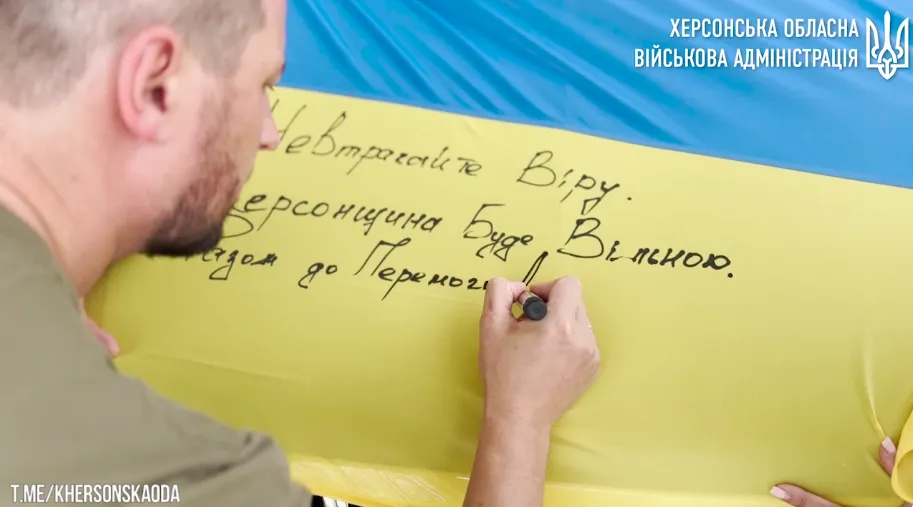 ХЕРСОНСЬКА ОБЛАСНА
ВІЙСЬКОВА АДМІНІСТРАЦІЯ
Невтрачайте Віру.
Херсонщина Буде Вільною.
Разом до Перемоги
T.ME/KHERSONSKAODA